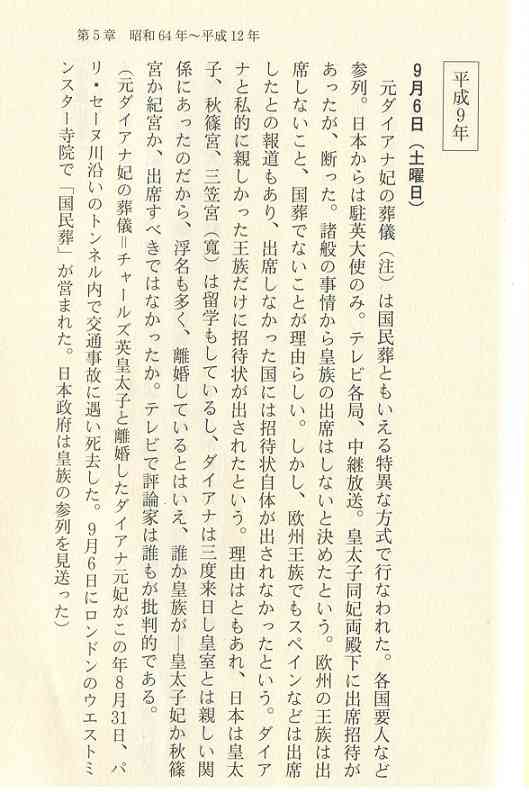 第5章　昭和64年〜平成12年
平成9年
9月6日（土曜日）
元ダイアナ妃の葬儀（注）は国民葬ともいえる特異な方式で行なわれた。各国要人など
参列。日本からは駐英大使のみ。テレビ各局、中継放送。皇太子同妃両殿下に出席招待が
あったが、断った。諸般の事情から皇族の出席はしないと決めたという。欧州の王族は出
席しないこと、国葬でないことが理由らしい。しかし、欧州王族でもスペインなどは出席
したとの報道もあり、出席しなかった国には招待状自体が出されなかったという。ダイア
ナと私的に親しかった王族だけに招待状が出されたという。理由はともあれ、日本は皇太
子、秋篠宮、三笠宮（寛）は留学もしているし、ダイアナは三度来日し皇室とは親しい関
係にあったのだから、浮名も多く、離婚しているとはいえ、誰か皇族が—皇太子妃か秋篠
宮か紀宮か、出席すべきではなかったか。テレビで評論家は誰もが批判的である。
（元ダイアナ妃の葬儀＝チャールズ英皇太子と離婚したダイアナ元妃がこの年8月31日、パ
リ・セーヌ川沿いのトンネル内で交通事故に遇い死去した。9月6日にロンドンのウエストミ
ンスター寺院で「国民葬」が営まれた。日本政府は皇族の参列を見送った）